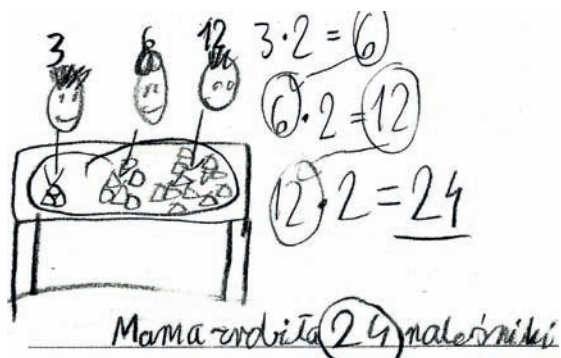 3 6 12
3·2=6
6·2=12
12·2=24
Mama zrobiła 24 naleśniki